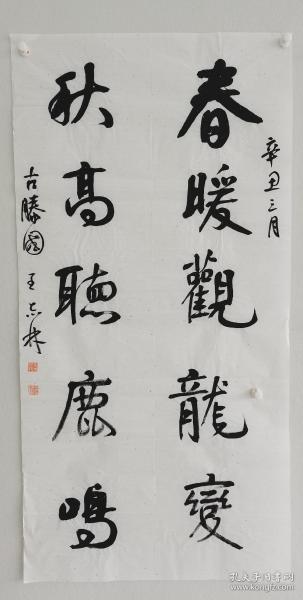 辛丑三月
春暖觀龍變
秋高聽鹿鳴
古滕國王志林
孔夫子旧书网